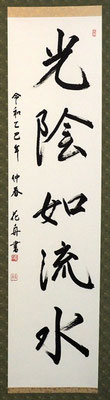 光陰如流水
令和乙巳年 仲春 花舟書